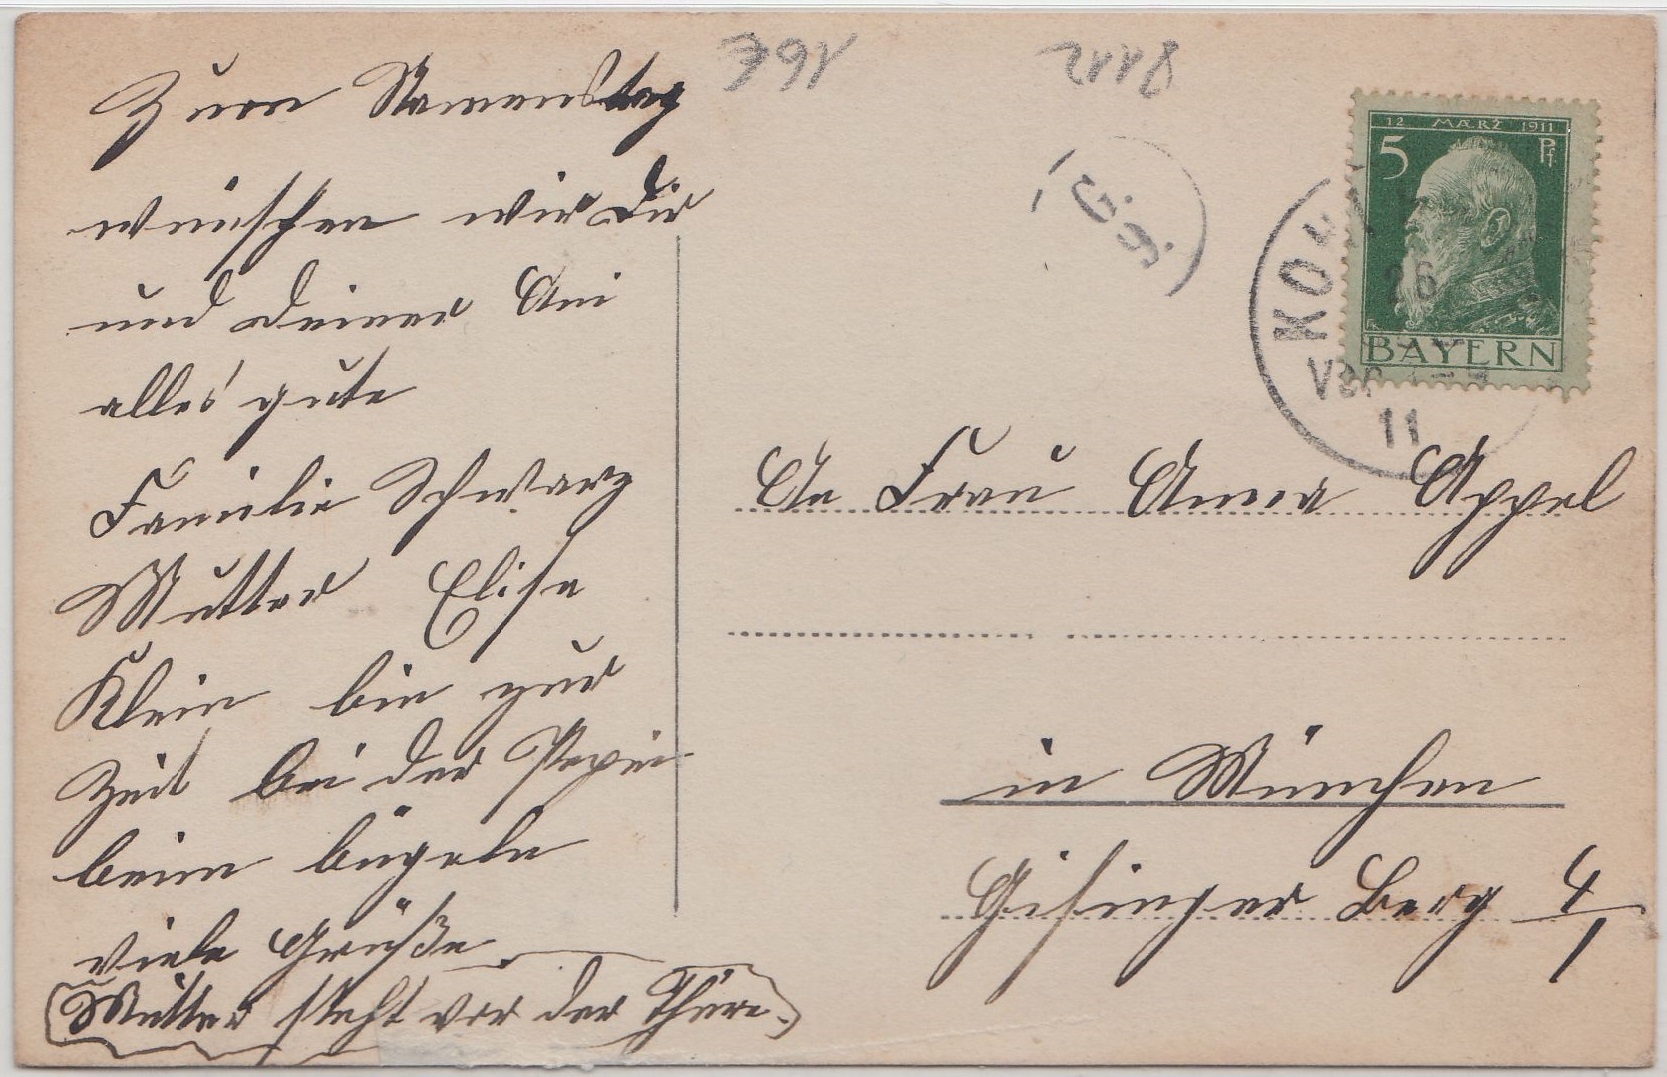 Zum Namenstag
wünschen wir Dir
und deiner Ani
alles gute
Familie Schwarz
Mutter Elise
Klein bin zur
Zeit bei der Pepi
beim bügeln
viele Grüße
Mutter steht vor der Thüre.
16€
2112
G. g.
12 MÆRZ 1911
5 Pf.
BAYERN
26
VOR
11
An Frau Anna Appel
in München
Gisinger Berg 4/1